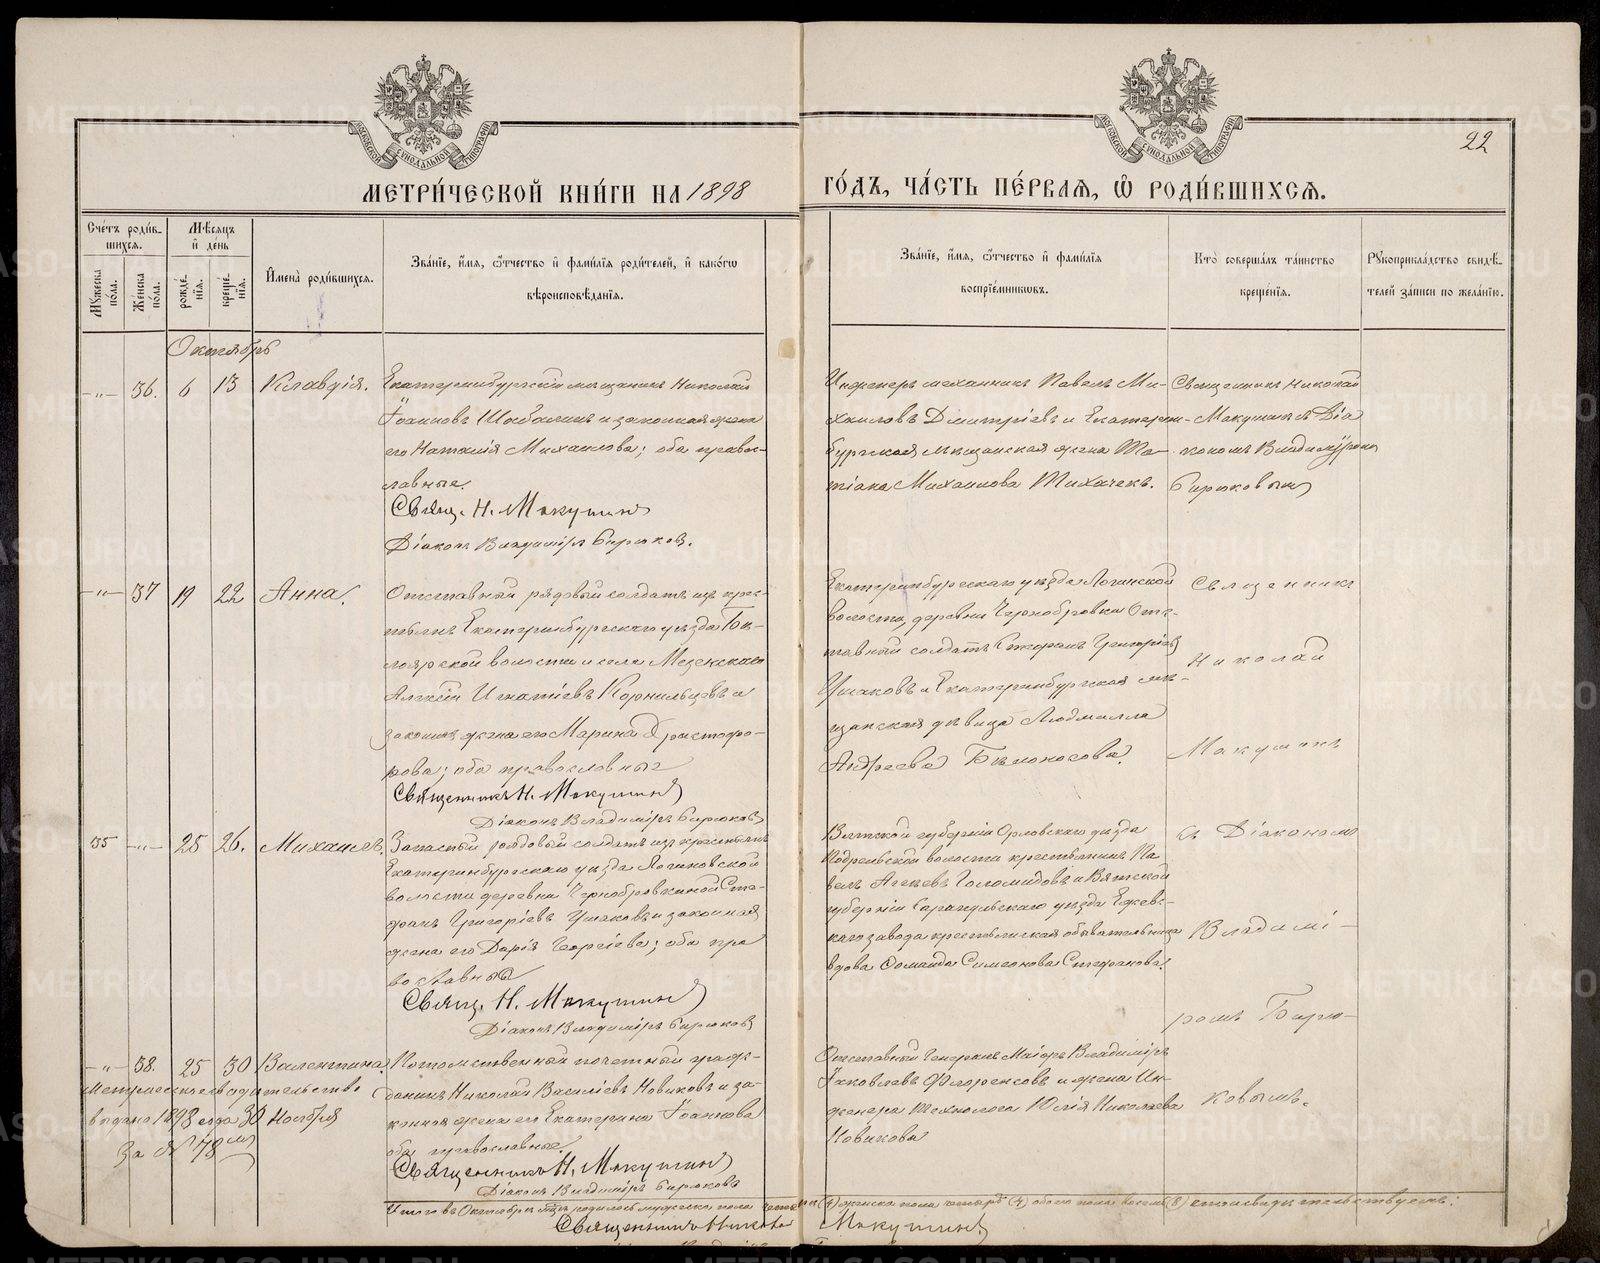 МОСКОВСКОЙ СѴНОДАЛЬНОЙ ТИПОГРАФІИ
МОСКОВСКОЙ СѴНОДАЛЬНОЙ ТИПОГРАФІИ
22
МЕТРИ́ЧЕСКОЙ КНИ́ГИ НА 1898
ГО́ДЪ, ЧА́СТЬ ПЕ́РВАѦ, Ѡ҆ РОДИ́ВШИХСѦ.
Сче́тъ роди́в-
шихсѧ.
Мꙋжеска по́ла.
Же́нска по́ла.
Мѣ́сѧцъ
и҆ де́нь
рожде́-
нїѧ.
креще́-
нїѧ.
И҆мена̀ роди́вшихсѧ.
Зва́нїе, и҆́мѧ, ѻ҆́тчество и҆ фами́лїѧ роди́телей, и҆ како́гѡ
вѣроисповѣ́данїѧ.
Зва́нїе, и҆́мѧ, ѻ҆́тчество и҆ фами́лїѧ
воспрїе́мникѡвъ.
Кто̀ соверша́лъ та́инство
креще́нїѧ.
Рꙋкоприкла́дство свидѣ́-
телей за́писи по жела́нїю.
Октябрь
-„- 36. 6 13 Клавдія.
Екатеринбургскій мѣщанинъ Николай
Іоанновъ и законная жена
его Наталія Михаилова; оба правос-
лавные.
Свящ. Н. Макушинъ
Діаконъ Владиміръ Бирюковъ.
Инженеръ механникъ Павелъ Ми-
хаиловъ Димитріевъ и Екатерин-
бургская мѣщанская жена Та-
тіана Михаилова Тихачекъ.
Священникъ Николай
Макушинъ съ Діа
кономъ Владиміромъ
Бирюковымъ
-„- 37 19 22 Анна.
Отставный рядовый солдатъ изъ крес-
тьянъ Екатеринбургскаго уѣзда Бѣ-
лоярской волости и села Мезенскаго
Алексій Игнатіевъ Корнильцевъ и
законная жена его Марина Христофо-
рова; оба православные
Священникъ Н. Макушинъ
Діаконъ Владиміръ Бирюковъ
Екатеринбургскаго уѣзда Логинской
волости, деревни Чернобровки Отс-
тавный солдатъ Стефанъ Григоріевъ
Ушаковъ и Екатеринбургская мѣ-
щанская дѣвица Людмилла
Андреева Бѣлоносова.
Священникъ
Николай
Макушинъ
35 -„- 25 26. Михаилъ.
Запасный рядовый солдатъ изъ крестьянъ
Екатеринбургскаго уѣзда Логиновской
волости деревни Чернобровкиной Сте-
фанъ Григоріевъ Ушаковъ и законная
жена его Дарія Георгіева; оба пра
вославные
Свящ. Н. Макушинъ
Діаконъ Владиміръ Бирюковъ
Вятской губерніи Орловскаго уѣзда
волости крестьянинъ Па
велъ Агѣевъ Голомидовъ и Вятской
губерніи Сарапульскаго уѣзда Ежев-
каго завода крестьянская обывательница
вдова Соманида Симеонова Стефанова.
съ Діакономъ
Владимі-
ромъ Бирю-
ковымъ.
-„- 38. 25 30 Валентина
Метрическое свидѣтельство
выдано 1898 года 30 Ноября
За № 78 мъ
Потомственный почетный граж-
данинъ Николай Василіевъ Новиковъ и за-
конная жена его Екатерина Іоаннова
оба православные.
Священникъ Н. Макушинъ
Діаконъ Владиміръ Бирюковъ
Отставный Генералъ Маіоръ Владиміръ
Іаковлевъ Флоренсовъ и жена Ин-
женера Технолога Юлія Николаева
Новикова
Итого въ Октябрѣ мцѣ родилось мужеска пола четыре (4) женска пола четыре (4) обоего пола восемь (8) въ томъ свидѣтельствуемъ:
Священникъ Николай Макушинъ